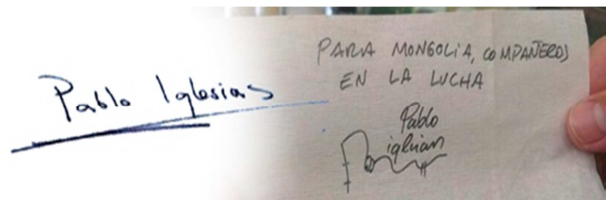 Pablo Iglesias
PARA MONGOLIA, COMPAÑEROS
EN LA LUCHA
Pablo
iglesias